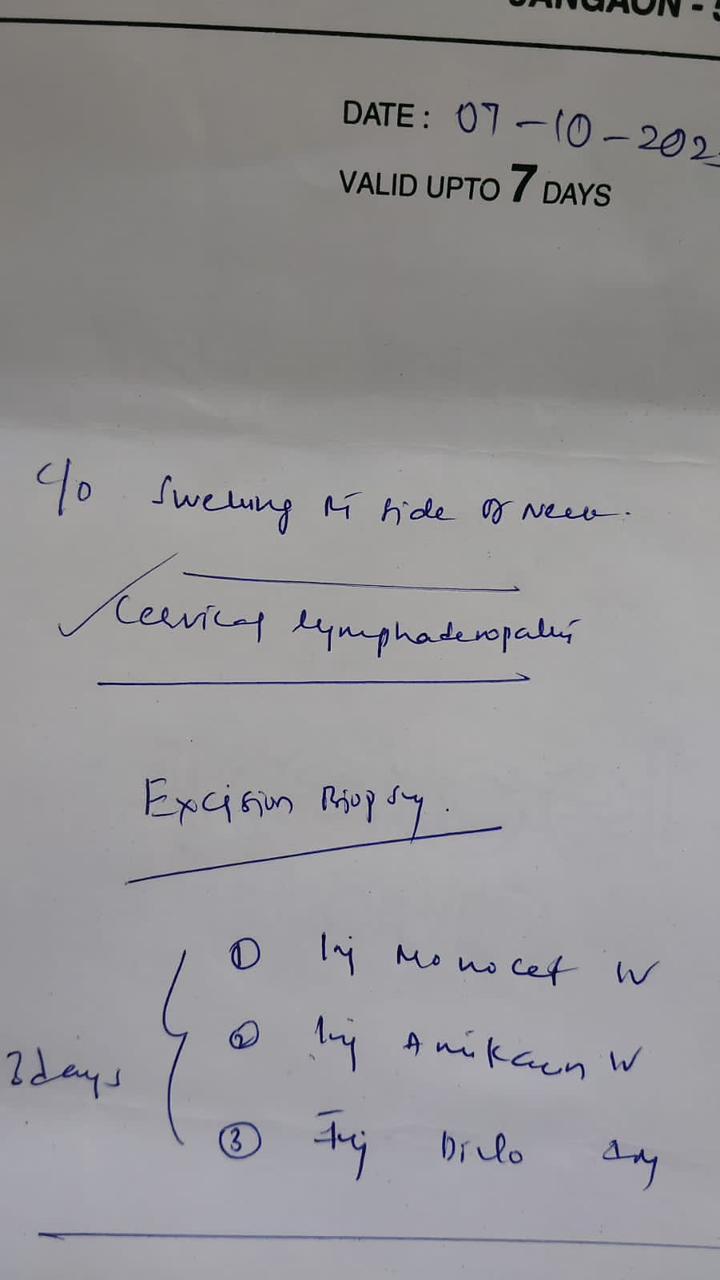 JANGAON - 5
DATE : 07-10-202
VALID UPTO 7 DAYS
c/o Swelling Rt side of Neck.
Cervical lymphadenopathy
Excision Biopsy.
① Inj Monocef IV
② Inj Amikacin IV
3 days
③ Inj Diclo